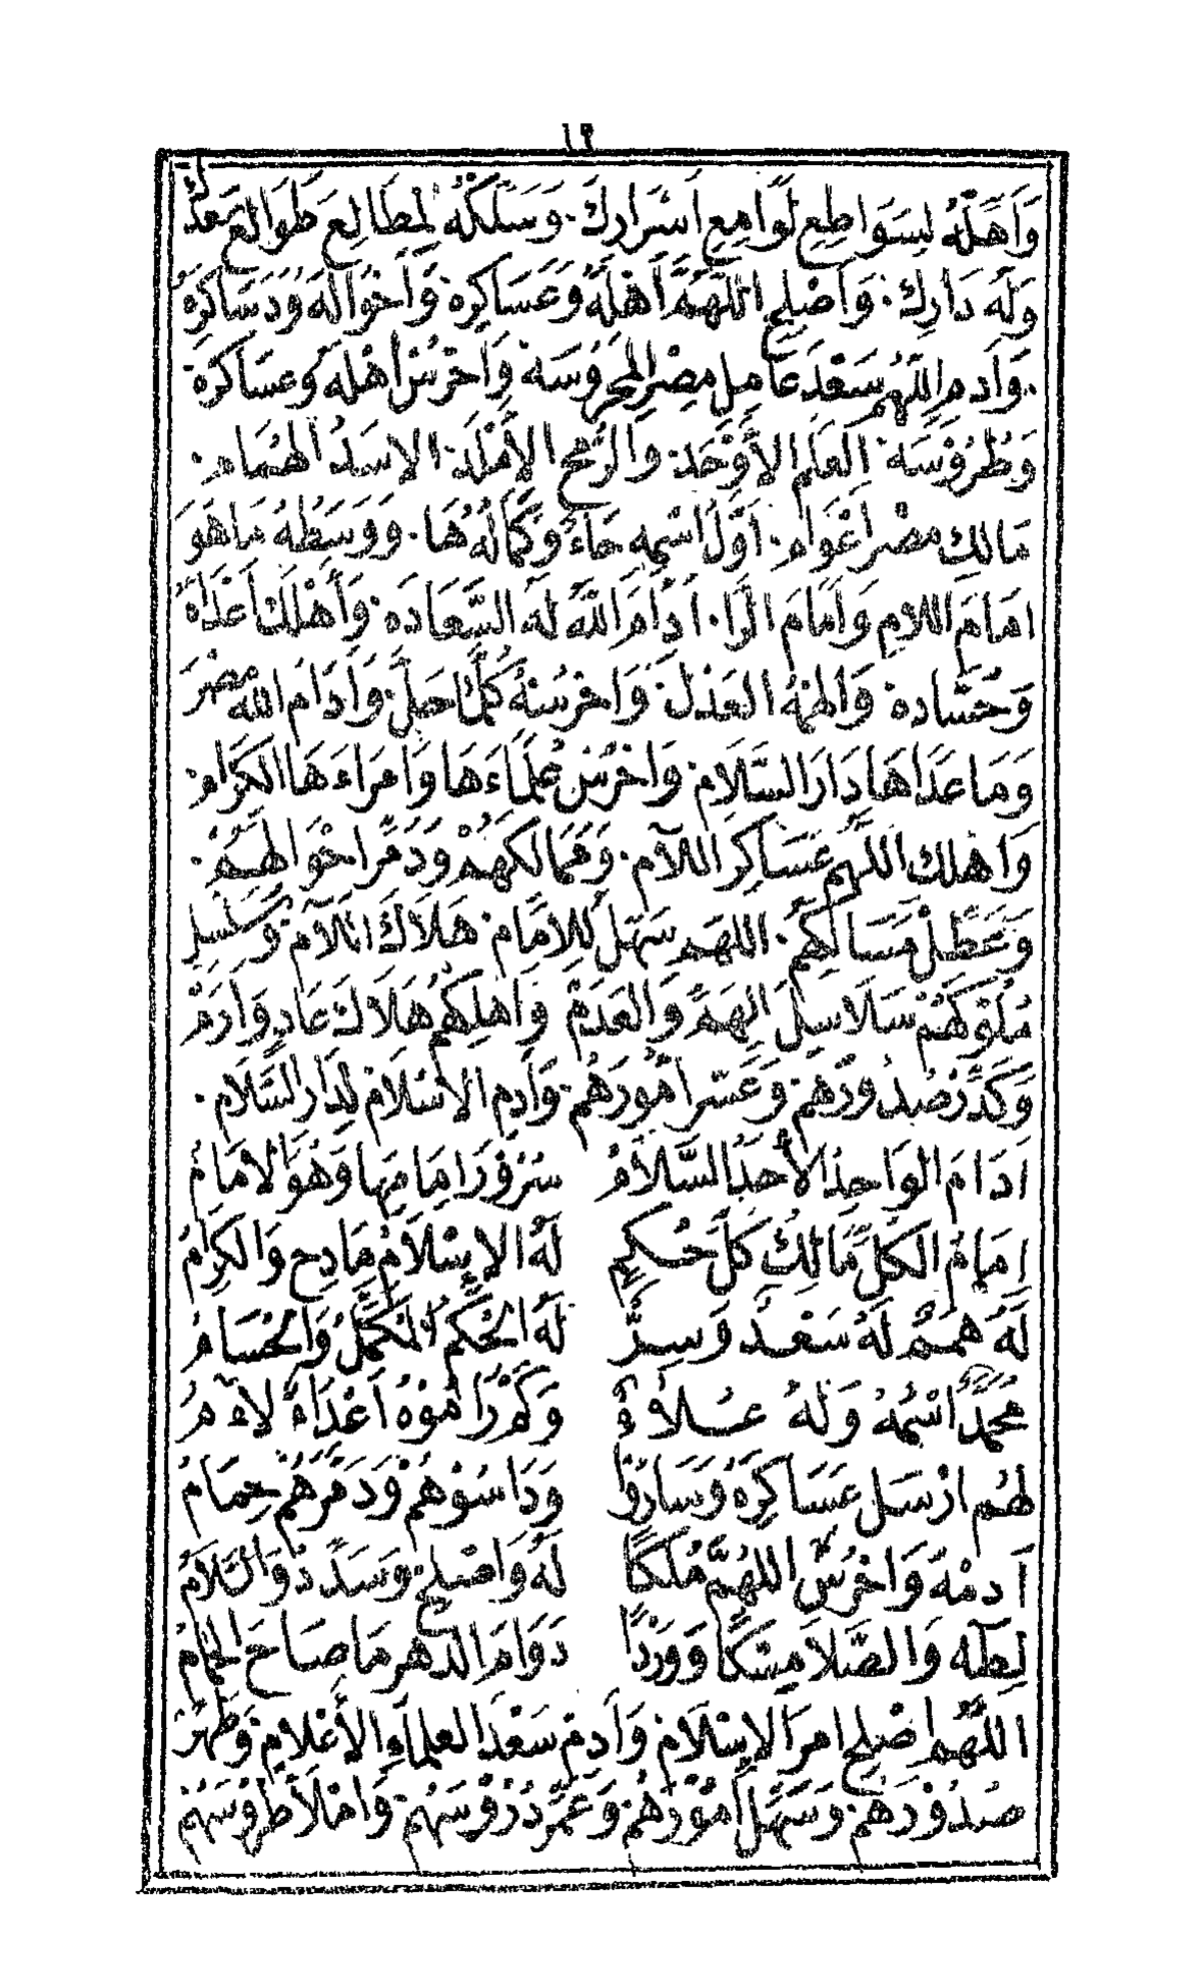 ١٢
وَاَهِّلْهُ لِسَوَاطِعِ لَوَامِعِ اَسْرَارِكَ. وَسَلِّكْهُ لِمَطَالِعِ طَوَالِعِ
وَلَهُ دَارِك. وَاَصْلِحِ اللّٰهُمَّ اَهْلَهُ وَعَسَاكِرَهُ وَاَحْوَالَهُ وَدَسَاكِرَهُ
. وَاَدِمِ اللّٰهُمَّ سَعْدَ عَامِلِ مِصْرِ الْمَحْرُوسَه وَاحْرُسْ اَهْلَهُ وَعَسَاكِرَهُ
وَطُرُوْسَه. العَلَمِ الاَوْحَدِ. وَالرُّمْحِ الاَمْلَدِ. الاسَدُ الهُمَام.
مَالِكِ مِصْرَ اَعْوَام. اَوَّلُ اسْمِهِ حَاءٌ وَكَمَالُهُ هَا. وَوَسَطُهُ مَا هُوَ
اَمَامَ اللامِ وَاَمَامَ الرَّا. اَدَامَ اللّٰهُ لَهُ السَّعَادَه. وَاَهْلَكَ اَعْدَاهُ
وَحُسَّادَه وَالْهِمْهُ العَدْلَ وَاحْرُسْهُ كُلَّمَا حَلَّ. وَاَدَامَ الله مِصْرَ
وَمَا عَدَاهَا دَارَ السَّلَامِ. وَاحْرُسْ عُلَمَاءَهَا وَاُمَرَاءَهَا الكِرَام.
وَاَهْلِك اللّٰهُمَّ عَسَاكِرَ اللآم. وَمَمَالِكَهُمْ وَدَمِّرْ اَحْوَالَهُمْ.
وَعَطِّلْ مَسَالِكَهُمْ. اللّٰهُمَّ سَهِّلْ لِلاِمَام. هَلَاكَ اللآم. وَسَلْسِلْ
مُلُوكَهُمْ سَلَاسِلَ الهَمِّ وَالعَدَم وَاَهْلِكْهُمْ هَلَاكَ عَادٍ وَاِرَمْ
وَكَدِّرْ صُدُورَهُمْ. وَعَسِّرْ اُمُورَهُمْ. وَاَدِمِ الاِسْلَامَ لِدَارِ السَّلَام.
اَدَامَ الوَاحِدُ الاَحَدُ السَّلَامُ سُرُوْرَ اِمَامِهَا وَهُوَ الاِمَامُ
اِمَامُ الكُلِّ مَالِكُ كُلِّ حُكْمٍ لَهُ الاِسْلَامُ مَادِحٌ وَالكِرَامُ
لَهُ هِمَمٌ لَهُ سَعْدٌ وَسِرٌّ لَهُ الحُكْمُ المُكَمَّلُ وَالحُسَامُ
مُحَمَّدٌ اسْمُهُ وَلَهُ عُلَاءٌ وَكَمْ رَامُوْهُ اَعْدَاءٌ لآمُ
لَهُمْ اَرْسَلَ عَسَاكِرَهُ وَسَارُوا وَدَاسُوْهُمْ وَدَمَّرَهُمْ حِمَامُ
اَدِمْهُ وَاحْرُسْ اللّٰهُمَّ مُلْكًا لَهُ وَاصْلِحْ وَسَدِّدْ وَالسَّلَامُ
لِطٰهَ وَالصَّلَا مِسْكًا وَوَرْدًا دَوَامَ الدَّهْرِ مَا صَاحَ الحَمَامُ
اللّٰهُمَّ اَصْلِحْ اَمْرَ الاِسْلَامِ وَاَدِمْ سَعْدَ العُلَمَاءِ الاَعْلَامِ. وَطَهِّرْ
صُدُوْرَهُمْ. وَسَهِّلْ اُمُوْرَهُمْ. وَعَمِّرْ دُرُوْسَهُمْ. وَامْلَأْ طُرُوْسَهُمْ